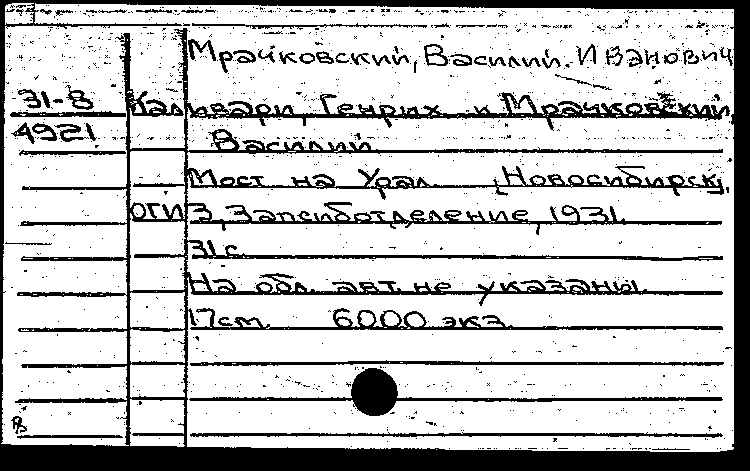 Мрачковский, Василий Иванович
31-8 Каливари, Генрих и Мрачковский,
4921 Василий
Мост на Урал. [Новосибирск],
ОГИЗ, Запсиботделение, 1931.
31 с.
На обл. авт. не указаны.
17см. 6000 экз.